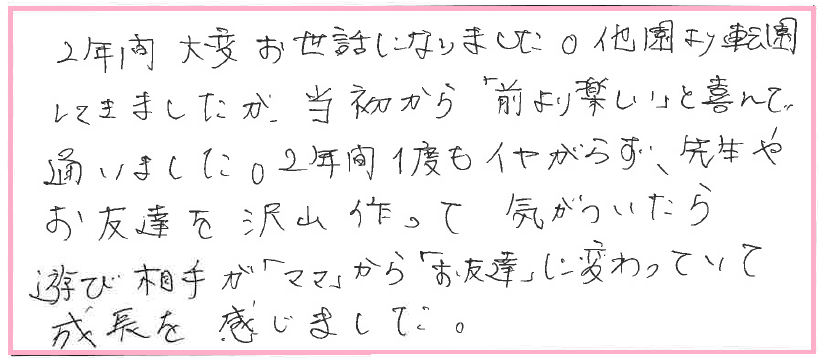 2年間 大変お世話になりました。他園より転園
してきましたが、当初から「前より楽しい」と喜んで
通いました。2年間1度もイヤがらず、先生や
お友達を沢山作って 気がついたら
遊び相手が「ママ」から「お友達」に変わっていて
成長を感じました。